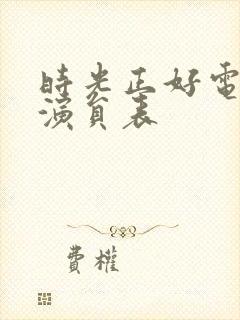 時光正好電
演員表
費權